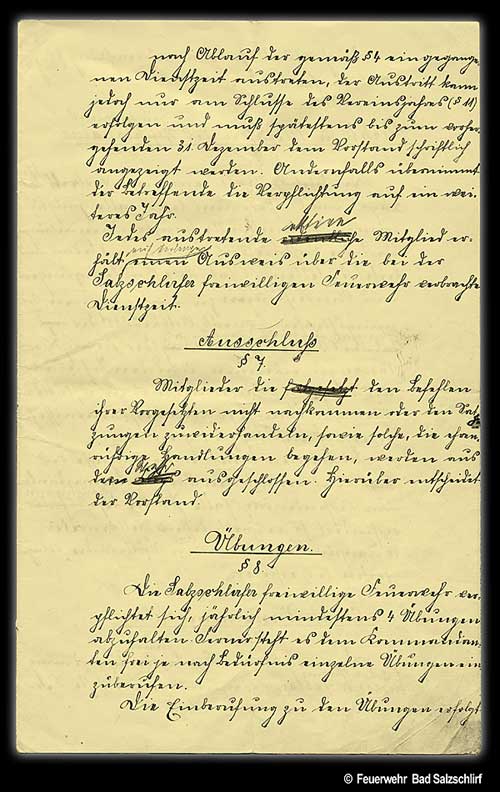 nach Ablauf der gemäß § 4 eingegange-
nen Dienstzeit austreten, der Austritt kann
jedoch nur am Schlusse des Vereinsjahres (§ 11)
erfolgen und muß spätestens bis zum vorher-
gehenden 31. Dezember dem Vorstand schriftlich
angezeigt werden. Andernfalls übernimmt
der betreffende die Verpflichtung auf ein wei-
teres Jahr.
aktive
Jedes austretende Mitglied er-
auf Verlangen
hält einen Ausweis über die bei der
Salzschlirfer freiwilligen Feuerwehr verbrachte
Dienstzeit.
Ausschluß
§ 7.
Mitglieder die fortgesetzt den Befehlen
ihrer Vorgesetzten nicht nachkommen oder den Sat-
zungen zuwiderhandeln, sowie solche, die ehren-
rührige Handlungen begehen, werden aus
der ausgeschlossen. Hierüber entscheidet
der Vorstand.
Übungen.
§ 8.
Die Salzschlirfer freiwillige Feuerwehr ver-
pflichtet sich, jährlich mindestens 4 Übungen
abzuhalten. Ferner steht es dem Kommandan-
ten frei je nach Bedürfnis einzelne Übungen ein-
zuberufen.
Die Einberufung zu den Übungen erfolgt
© Feuerwehr Bad Salzschlirf